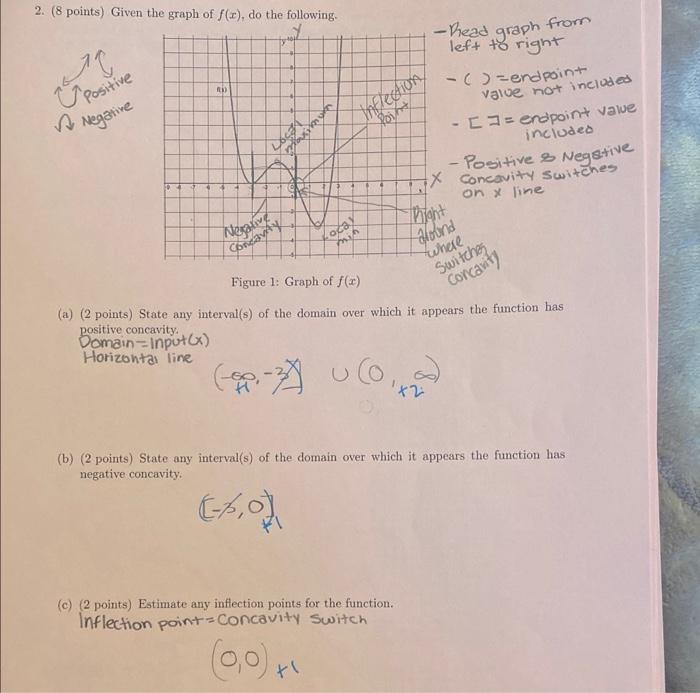 2. (8 points) Given the graph of f(x), do the following.
Positive
Negative
y
f(x)
Local
maximum
Inflection
Point
X
Negative
concavity
Local
min
- Read graph from
left to right
- ( ) = endpoint
value not included
- [ ] = endpoint value
included
- Positive & Negative
Concavity switches
on x line
Right
around
where
switches
concavity
Figure 1: Graph of f(x)
(a) (2 points) State any interval(s) of the domain over which it appears the function has
positive concavity.
Domain = Input(x)
Horizontal line
(-∞, -3] ∪ (0, ∞)
+1 +2
(b) (2 points) State any interval(s) of the domain over which it appears the function has
negative concavity.
[-3, 0]
+1
(c) (2 points) Estimate any inflection points for the function.
Inflection point = Concavity switch
(0,0) +1